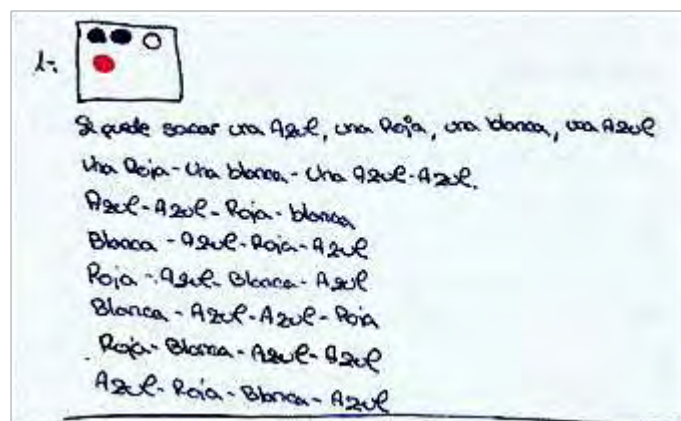 1-.
Se puede sacar una Azul, una Roja, una blanca, una Azul
Una Roja - Una blanca - Una Azul - Azul.
Azul - Azul - Roja - blanca
Blanca - Azul - Roja - Azul
Roja - Azul - Blanca - Azul
Blanca - Azul - Azul - Roja
Roja - Blanca - Azul - Azul
Azul - Roja - Blanca - Azul